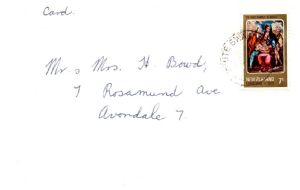 Card.
Mr & Mrs. H. Bowd,
7 Rosamund Ave
Avondale 7.
NEW ZEALAND